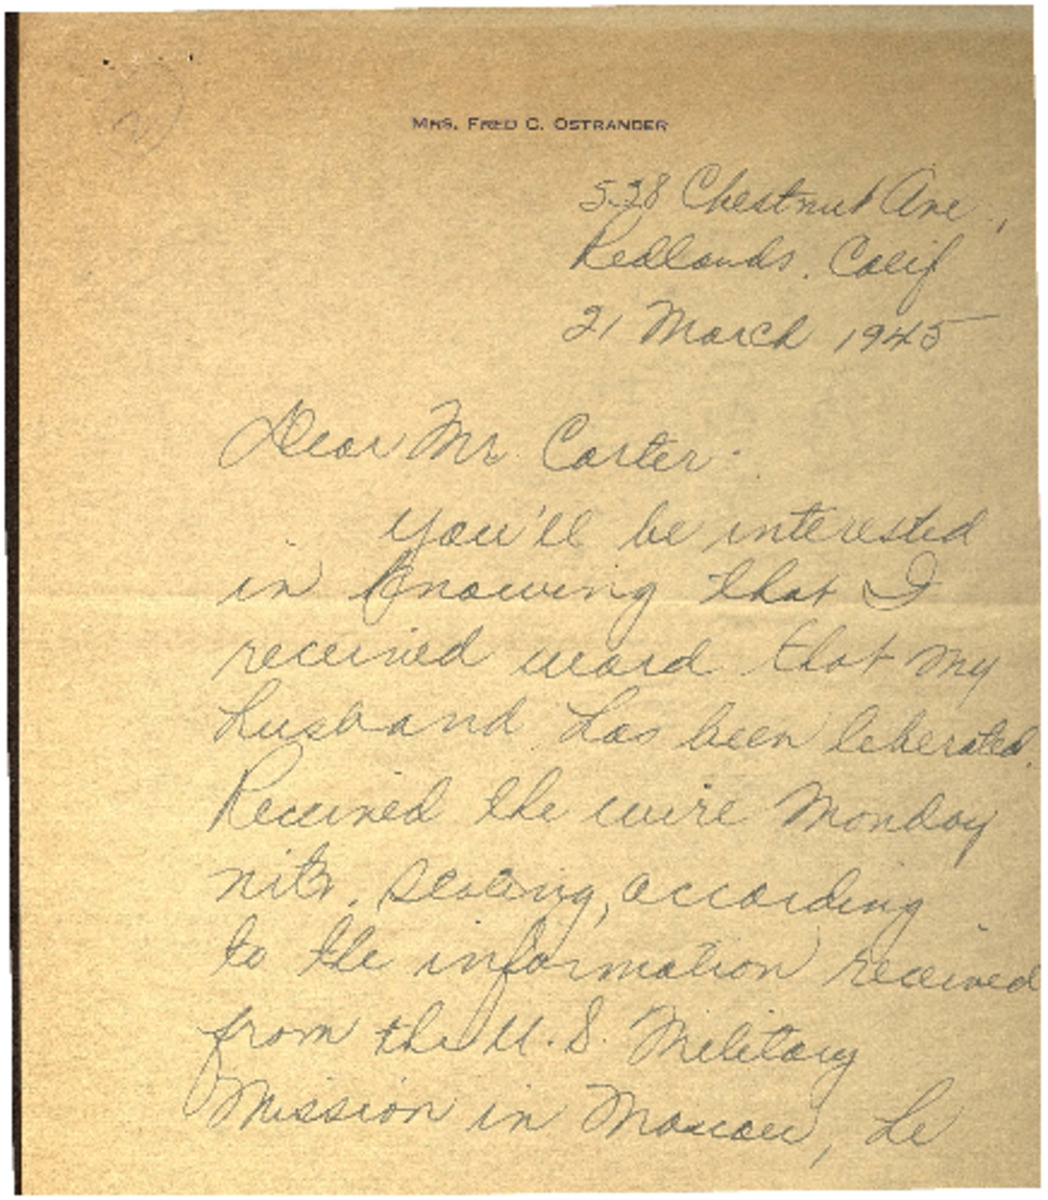 MRS. FRED C. OSTRANDER
538 Chestnut Ave.,
Redlands, Calif
21 March 1945
Dear Mr. Carter:
You'll be interested
in knowing that I
received word that my
husband has been liberated.
Received the wire Monday
nite, stating, according
to the information received
from the U.S. Military
Mission in Moscow, he